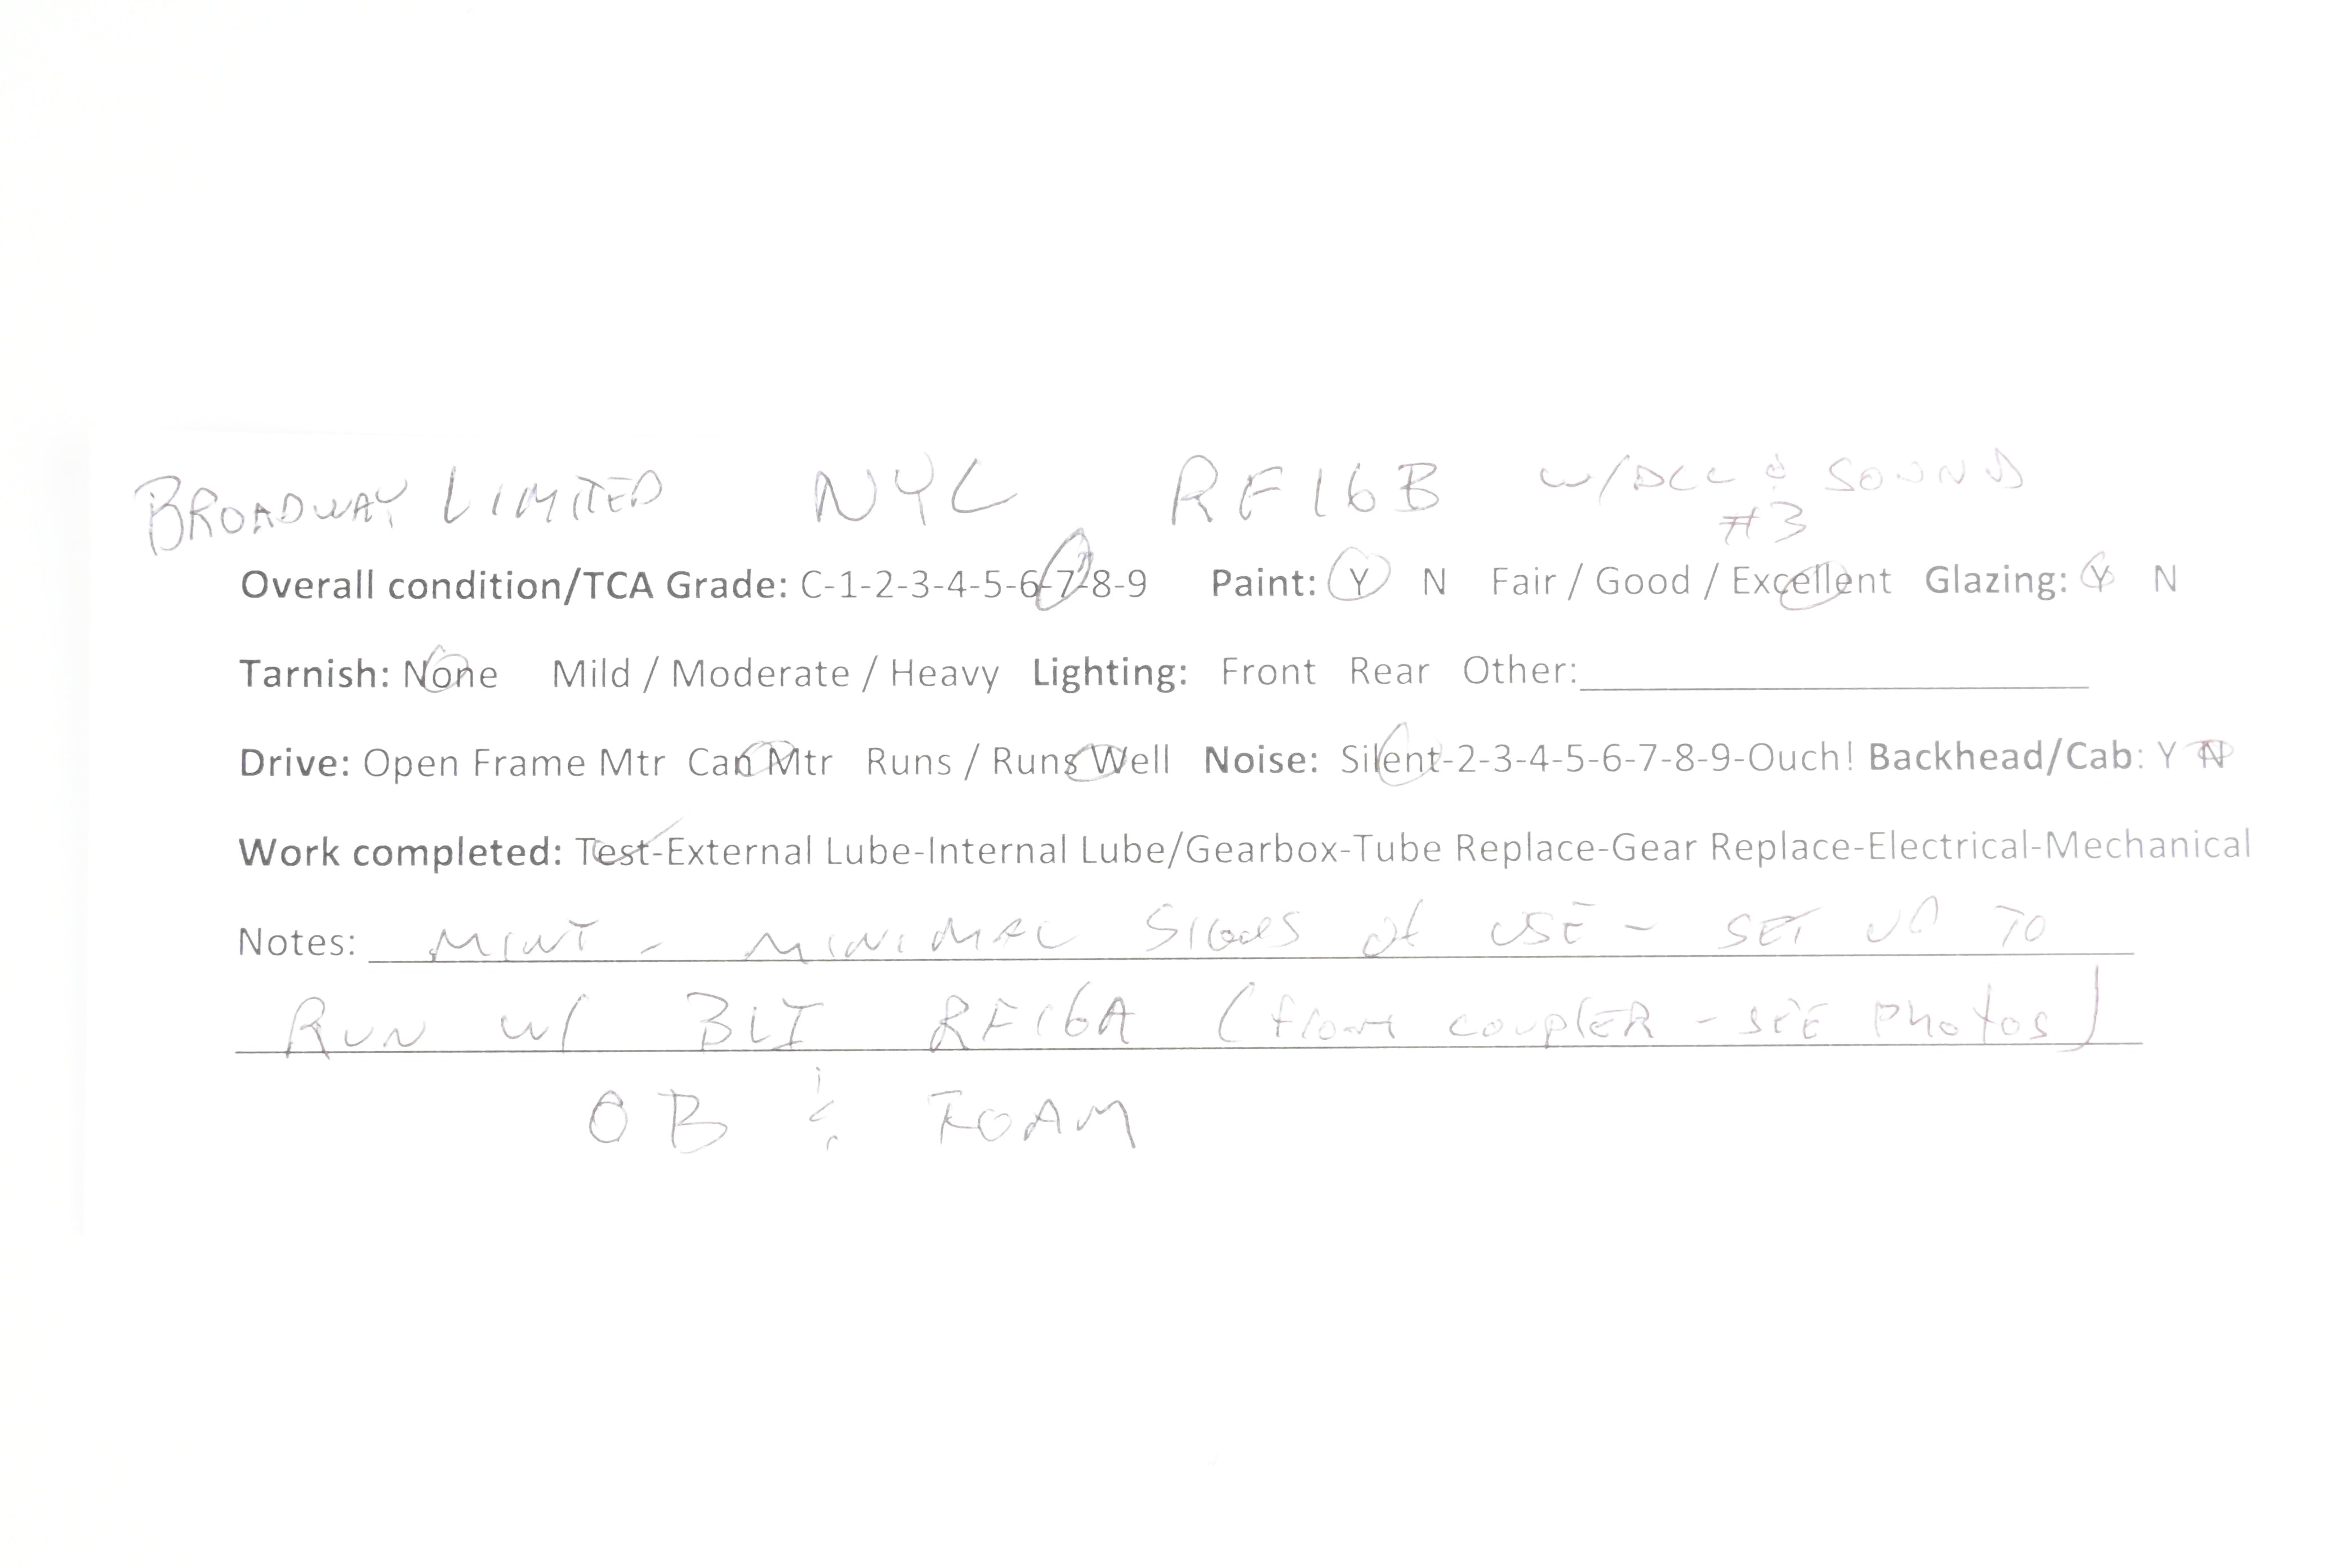 BROADWAY LIMITED NYC RF16B W/DCC & SOUND
#3
Overall condition/TCA Grade: C-1-2-3-4-5-6-7-8-9 Paint: Y N Fair / Good / Excellent Glazing: Y N
Tarnish: None Mild / Moderate / Heavy Lighting: Front Rear Other:
Drive: Open Frame Mtr Can Mtr Runs / Runs Well Noise: Silent-2-3-4-5-6-7-8-9-Ouch! Backhead/Cab: Y N
Work completed: Test-External Lube-Internal Lube/Gearbox-Tube Replace-Gear Replace-Electrical-Mechanical
Notes: MINT - MINIMAL SIGNS of USE - SET UP TO
RUN W/ BLI RF16A (front coupLER - SEE Photos)
OB & FOAM